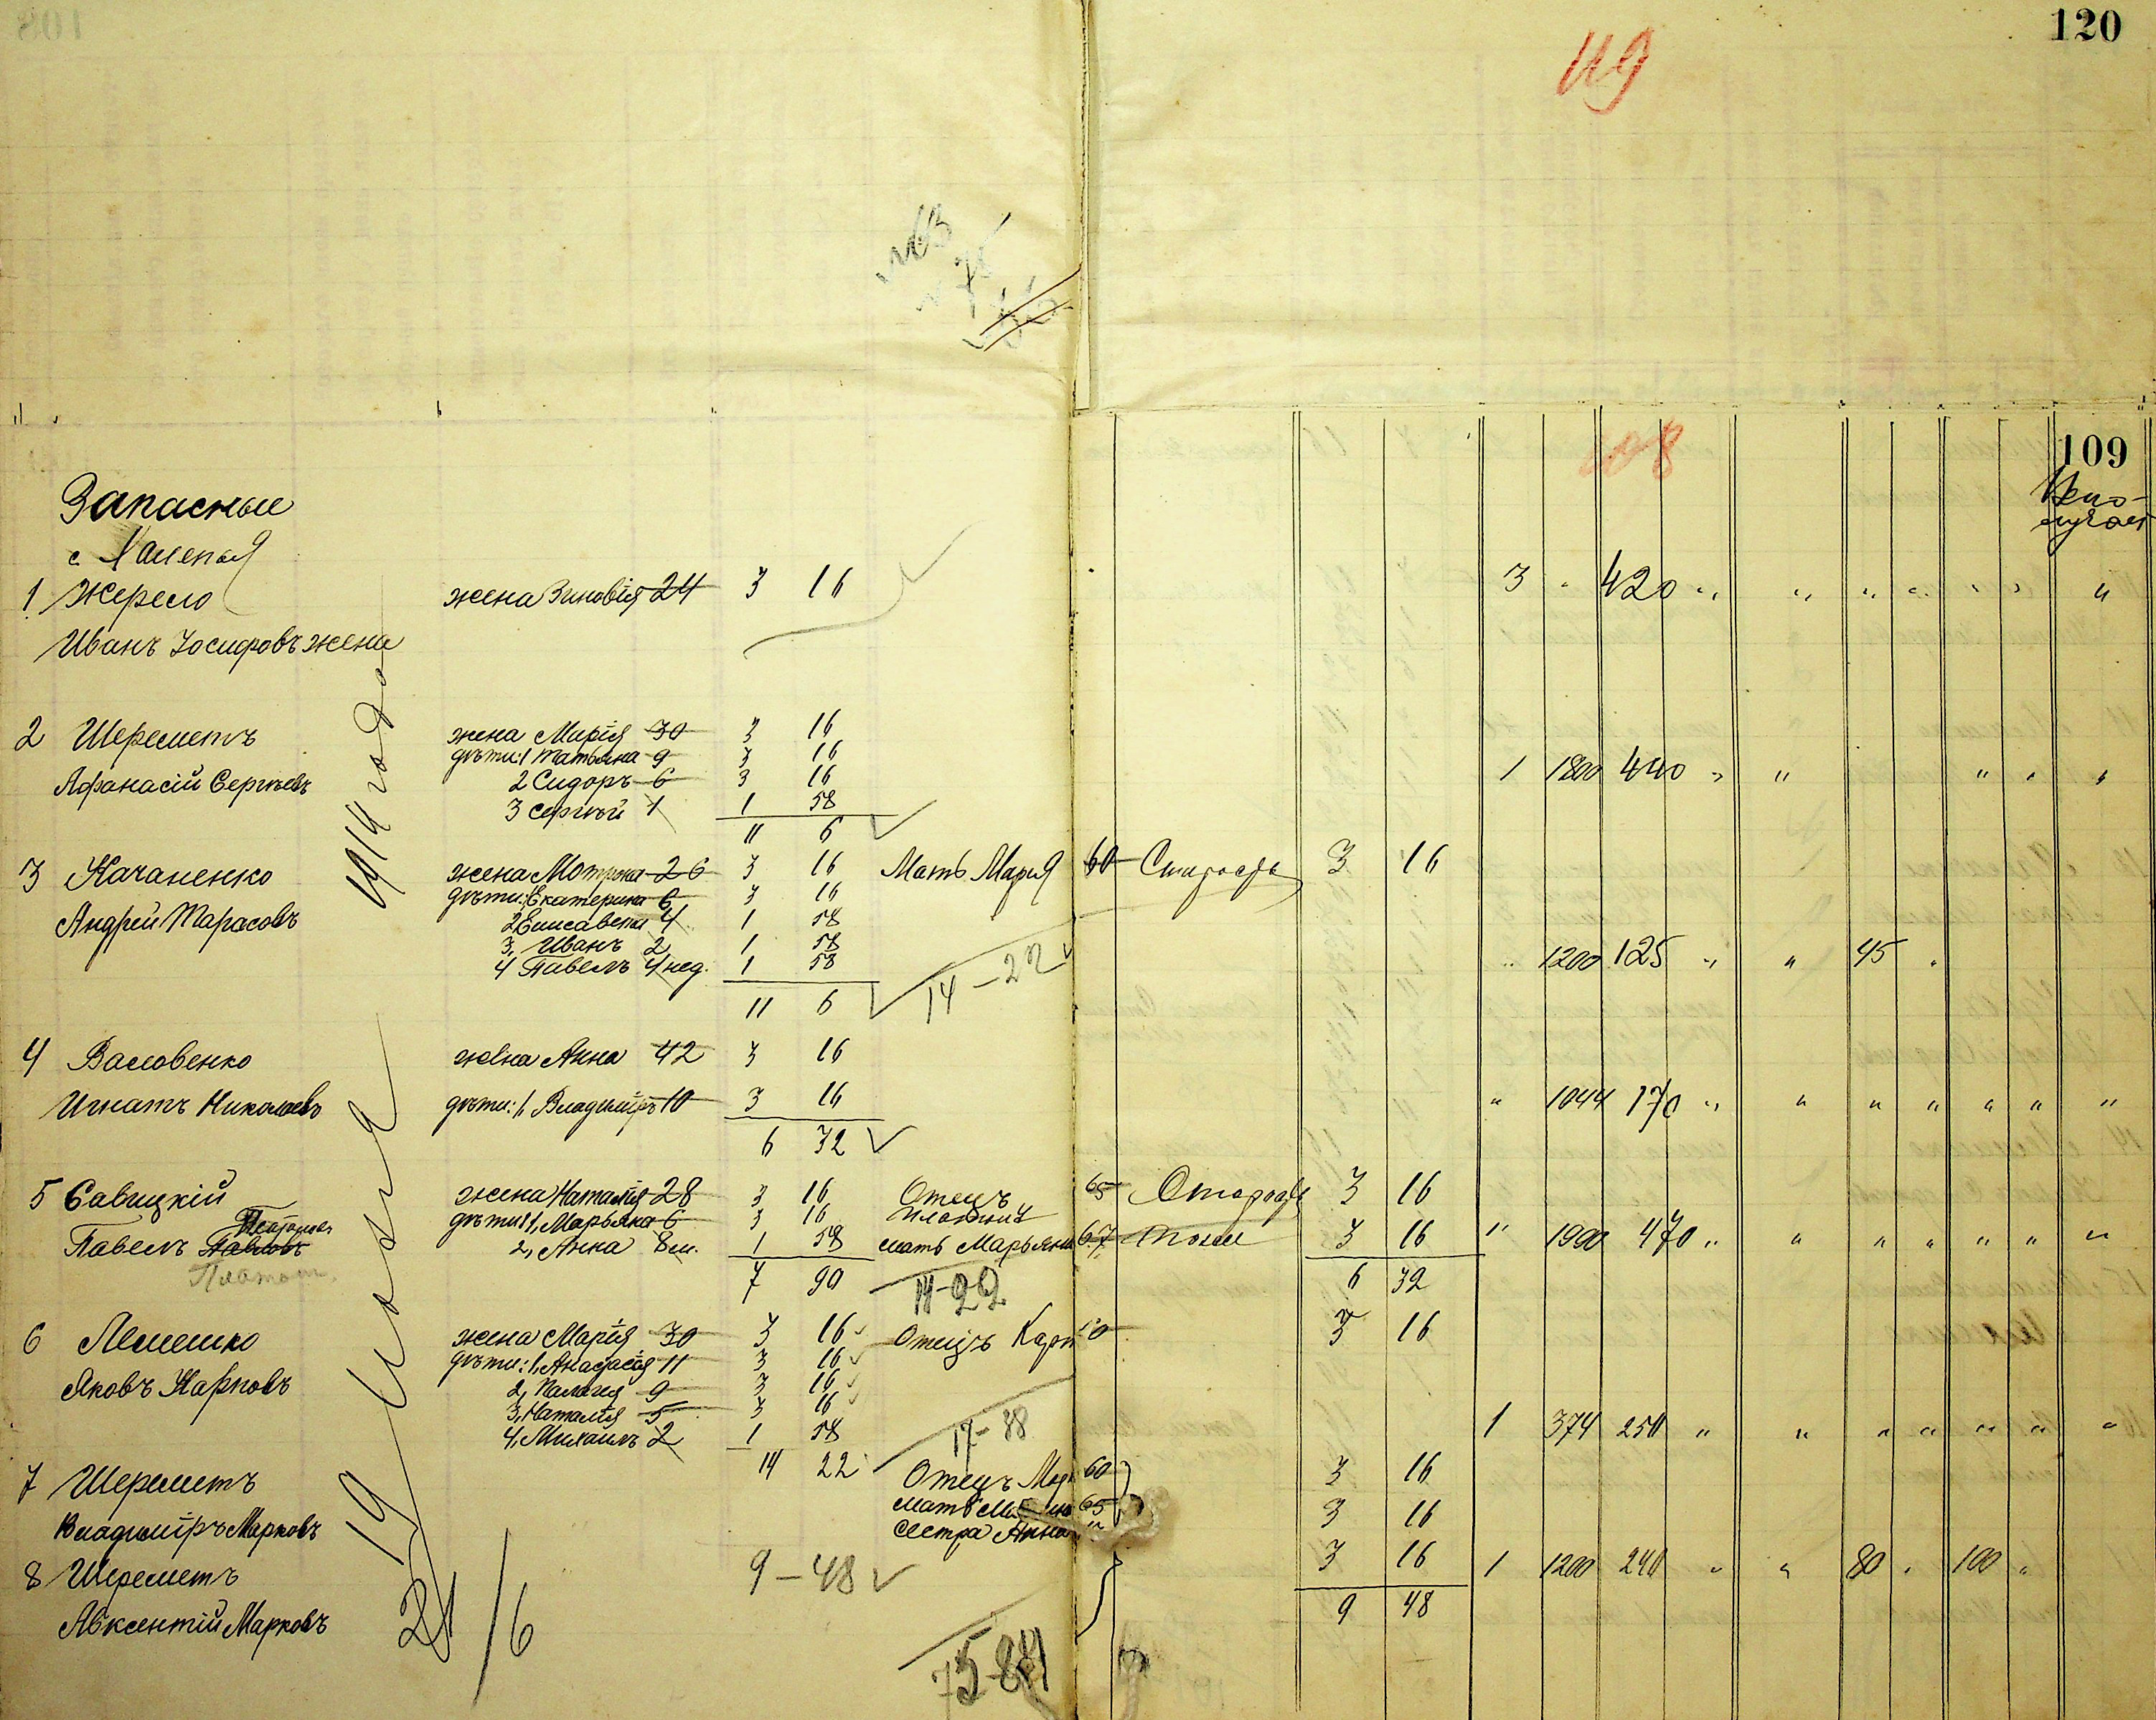 120
119
108
109
Запасные
с.
1 Жерело жена Зиновія 24 3 16 3 420
Иванъ Іосифовъ жена
1914 года
2 Шереметъ жена Марія 30 3 16
дѣти: 1 Татьяна 9 3 16
Афанасій Сергѣевъ 2 Сидоръ 6 3 16 1 1800 440
3 Сергѣй 1 1 58
11 6
3 Качаненко жена Мотрона 26 3 16 Мать Марія 60 Старость 3 16
дѣти: 1 Екатерина 6 3 16
Андрей Тарасовъ 2 Елисавета 4 1 58
3, Иванъ 2 1 58 1200 125 45
4 Павелъ 4 нед. 1 58
11 6 14-22
4 Васловенко жена Анна 42 3 16
Игнатъ Николаевъ дѣти: 1, Владиміръ 10 3 16 1044 170
6 32
5 Савицкій жена Наталія 28 3 16 Отецъ 65 Старость 3 16
дѣти: 1, Марьяна 6 3 16 Платонъ
Павелъ Павловъ 2, Анна 8 м. 1 58 мать Марьяна 67 тоже 3 16 1990 470
Платон.
7 90 14-22 6 32
6 Лемешко жена Марія 30 3 16 Отецъ Карп 3 16
дѣти: 1, Анастасія 11 3 16
Яковъ Карповъ 2, Палагея 9 3 16
3, Наталія 5 3 16
4, Михаилъ 2 1 58 17-38 1 374 250
14 22
7 Шереметъ Отецъ 60 3 16
мать 65 3 16
Владиміръ Марковъ сестра Анна
3 16 1 1200 240 80 100
8 Шереметъ 9-48 9 48
Авксентій Марковъ
19 Іюля
21/6
75-84